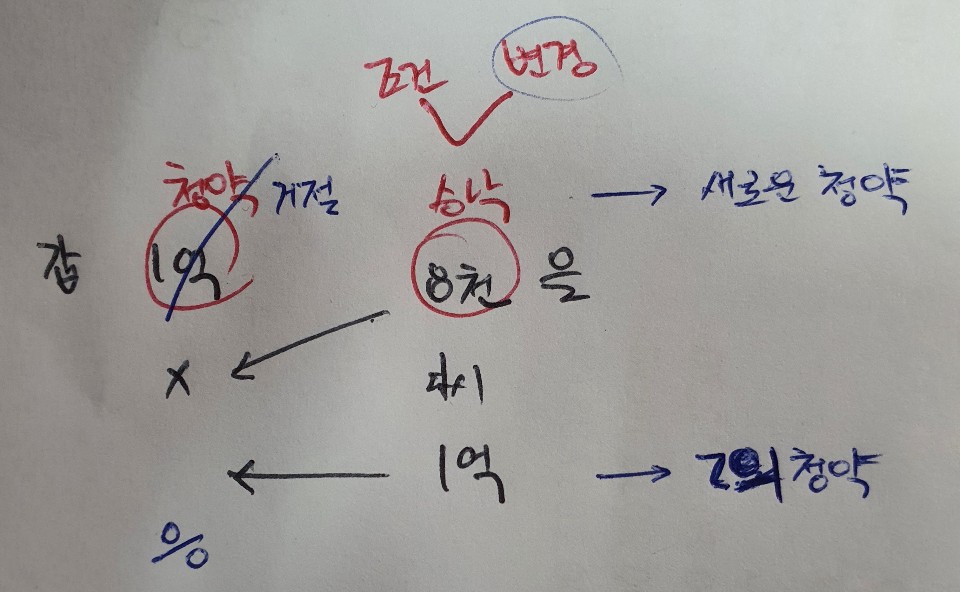 조건 변경
청약 거절 승낙 → 새로운 청약
갑 1억 8천 을
X ← 다시
← 1억 → 청약
%